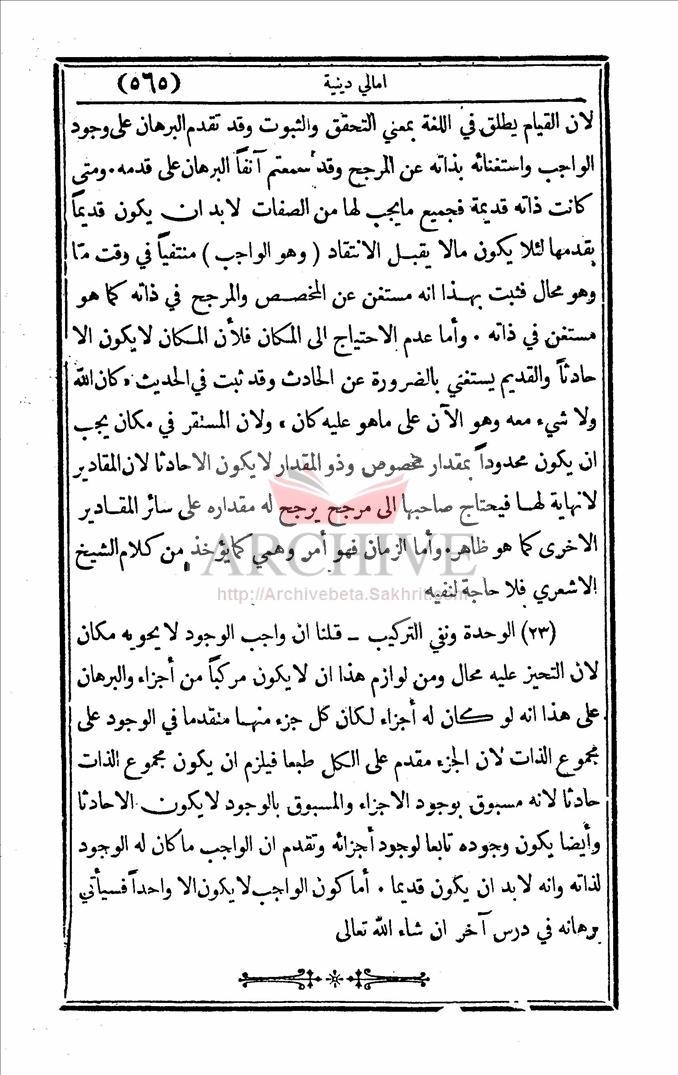 امالي دينية
(٥٦٥)
لان القيام يطلق في اللغة بمعني التحقق والثبوت وقد تقدم البرهان على وجود
الواجب واستغنائه بذاته عن المرجح وقد سمعتم آنفاً البرهان على قدمه ٠ ومتى
كانت ذاته قديمة فجميع مايجب لها من الصفات لابد ان يكون قديماً
بقدمها لئلا يكون مالا يقبل الانتقاد ( وهو الواجب ) منتفياً في وقت مّا
وهو محال فثبت بهذا انه مستغن عن المخصص والمرجح في ذاته كما هو
مستغن في ذاته ٠ وأما عدم الاحتياج الى المكان فلأن المكان لايكون الا
حادثاً والقديم يستغني بالضرورة عن الحادث وقد ثبت في الحديث « كان الله
ولا شيء معه وهو الآن على ماهو عليه كان » ولان المستقر في مكان يجب
ان يكون محدوداً بمقدار مخصوص وذو المقدار لايكون الاحادثا لان المقادير
لانهاية لها فيحتاج صاحبها الى مرجح يرجح له مقداره على سائر المقادير
الاخرى كما هو ظاهر ٠ وأما الزمان فهو أمر وهمي كما يؤخذ من كلام الشيخ
الاشعري فلا حاجة لنفيه
ARCHIVE
http://Archivebeta.Sakhrit.com
(٢٣) الوحدة ونفي التركيب ــ قلنا ان واجب الوجود لايحويه مكان
لان التحيز عليه محال ومن لوازم هذا ان لايكون مركباً من أجزاء والبرهان
على هذا انه لو كان له أجزاء لكان كل جزء منها متقدما في الوجود على
مجموع الذات لان الجزء مقدم على الكل طبعا فيلزم ان يكون مجموع الذات
حادثا لانه مسبوق بوجود الاجزاء والمسبوق بالوجود لايكون الاحادثا
وأيضا يكون وجوده تابعا لوجود أجزائه وتقدم ان الواجب ماكان له الوجود
لذاته وانه لابد ان يكون قديما ٠ أما كون الواجب لايكون الا واحداً فسيأتي
برهانه في درس آخر ان شاء الله تعالى